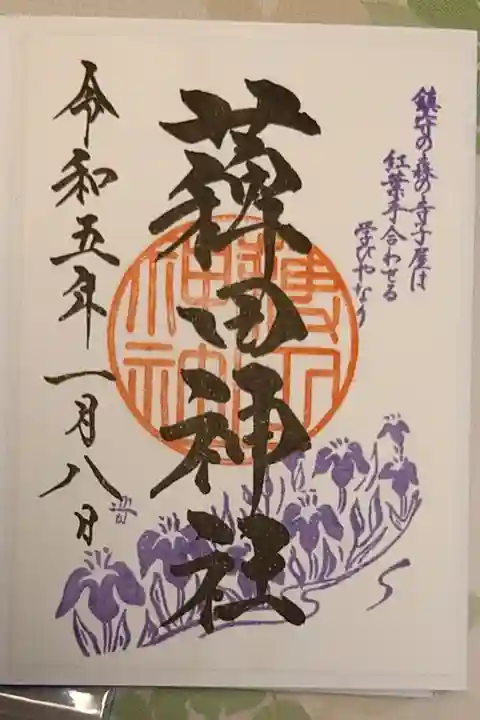 鎮守の森の寺子屋は
紅葉手合わせる
学びやなり
薭田神社
令和五年一月八日